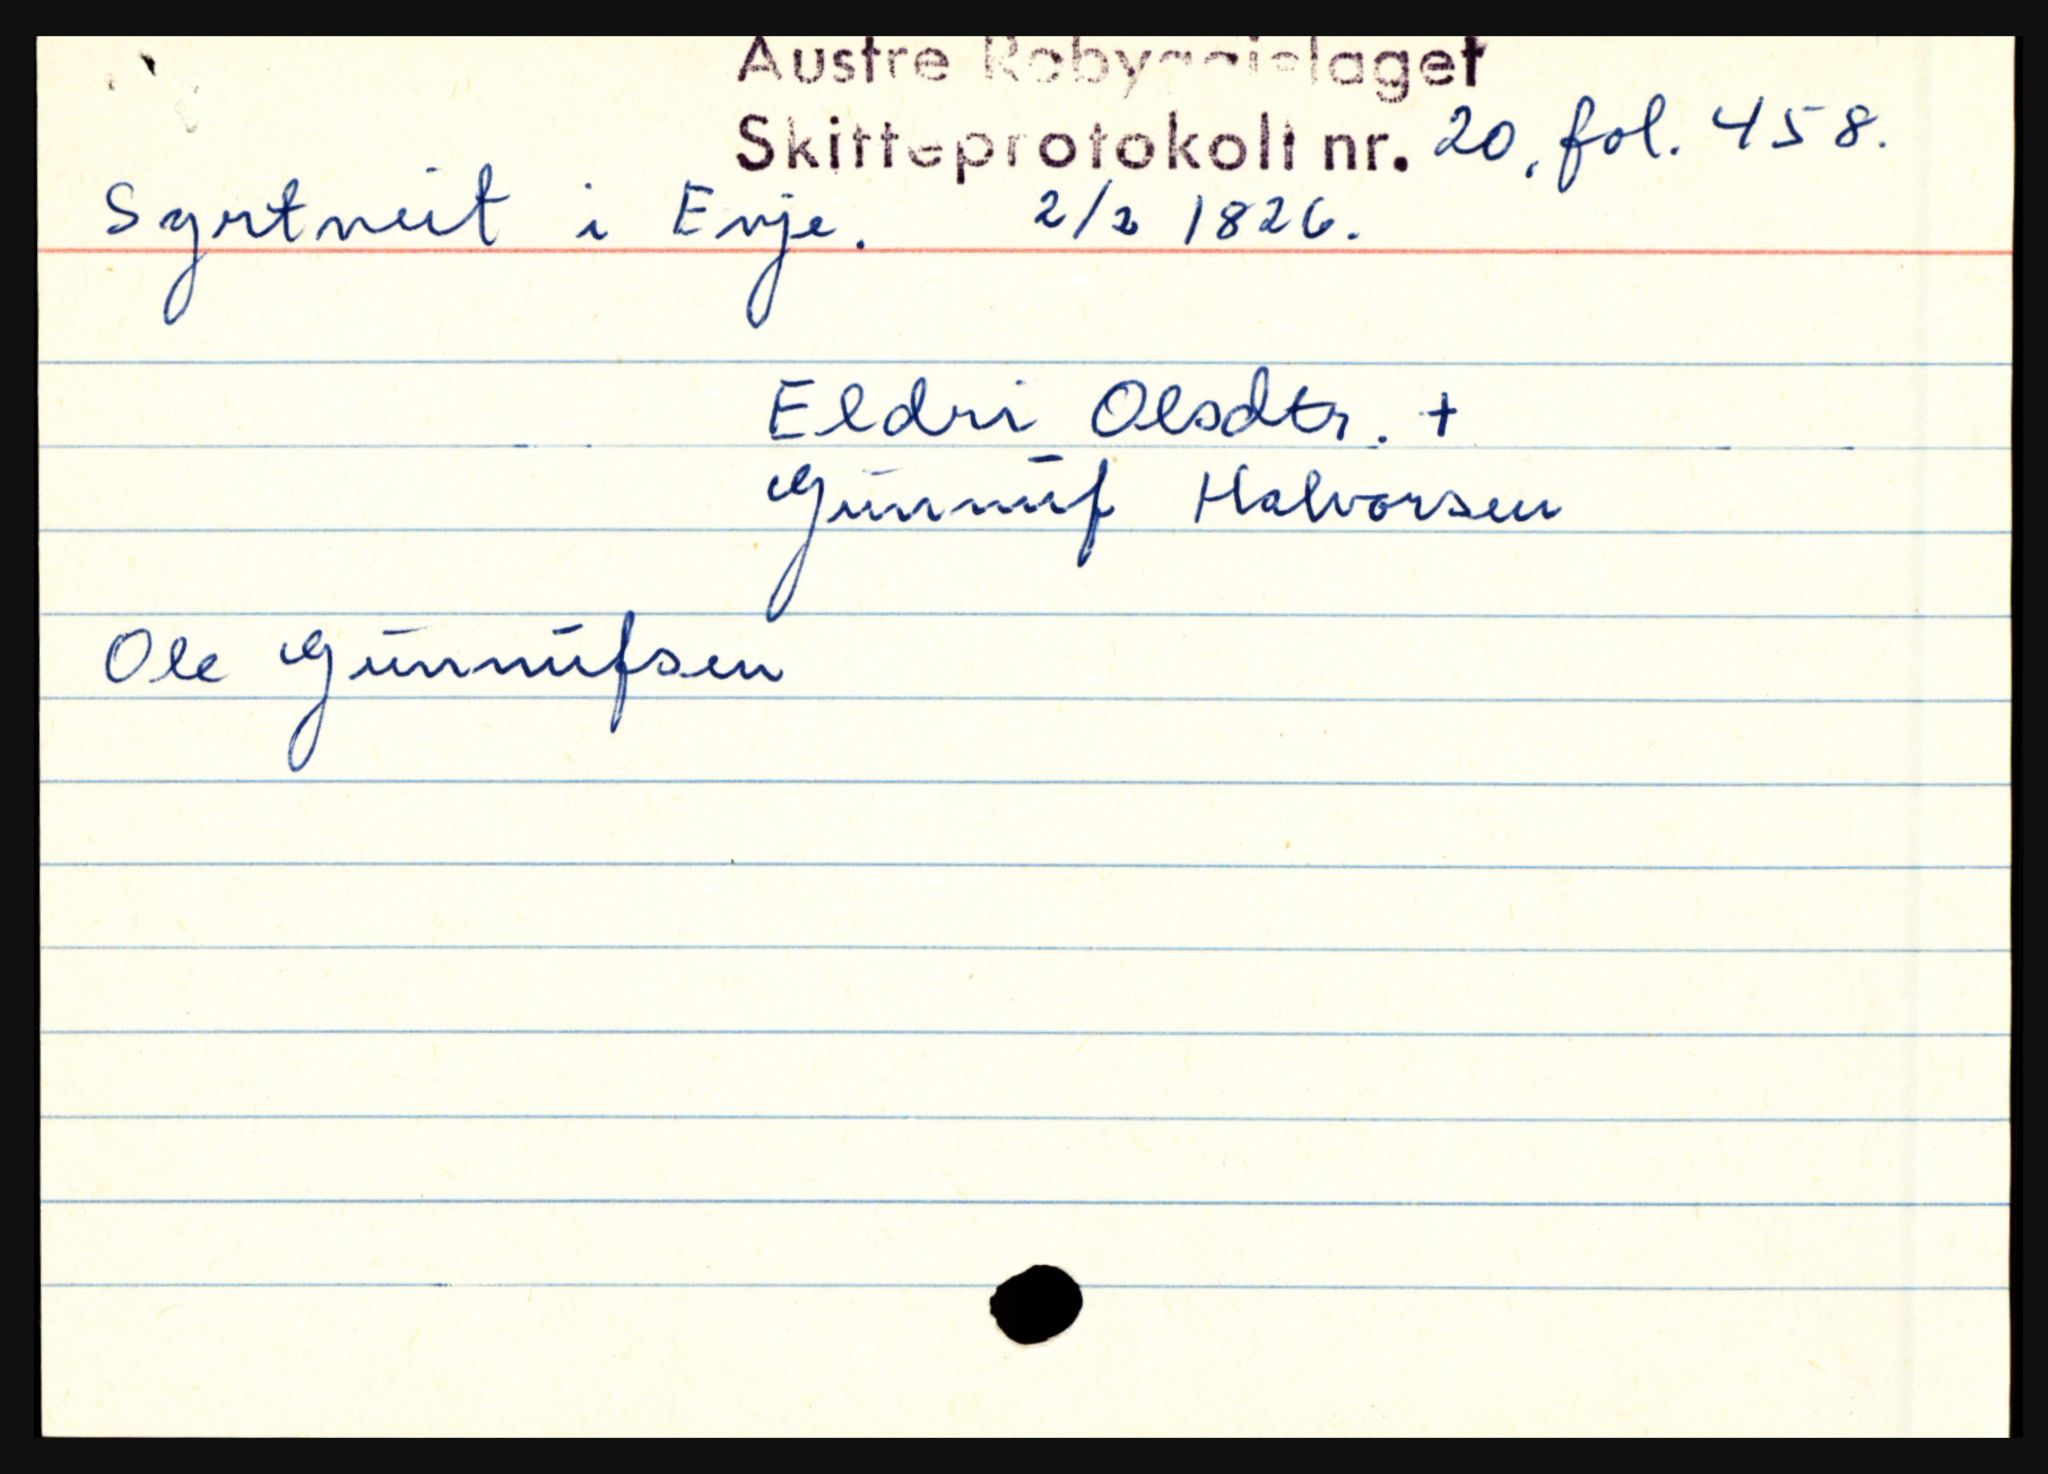 Austre Robyggjelaget
Skifteprotokoll nr. 20, fol. 458.
Syrtveit i Evje. 2/2 1826.
Eldri Olsdtr. +
Gunnuf Halvorsen
Ole Gunnufsen